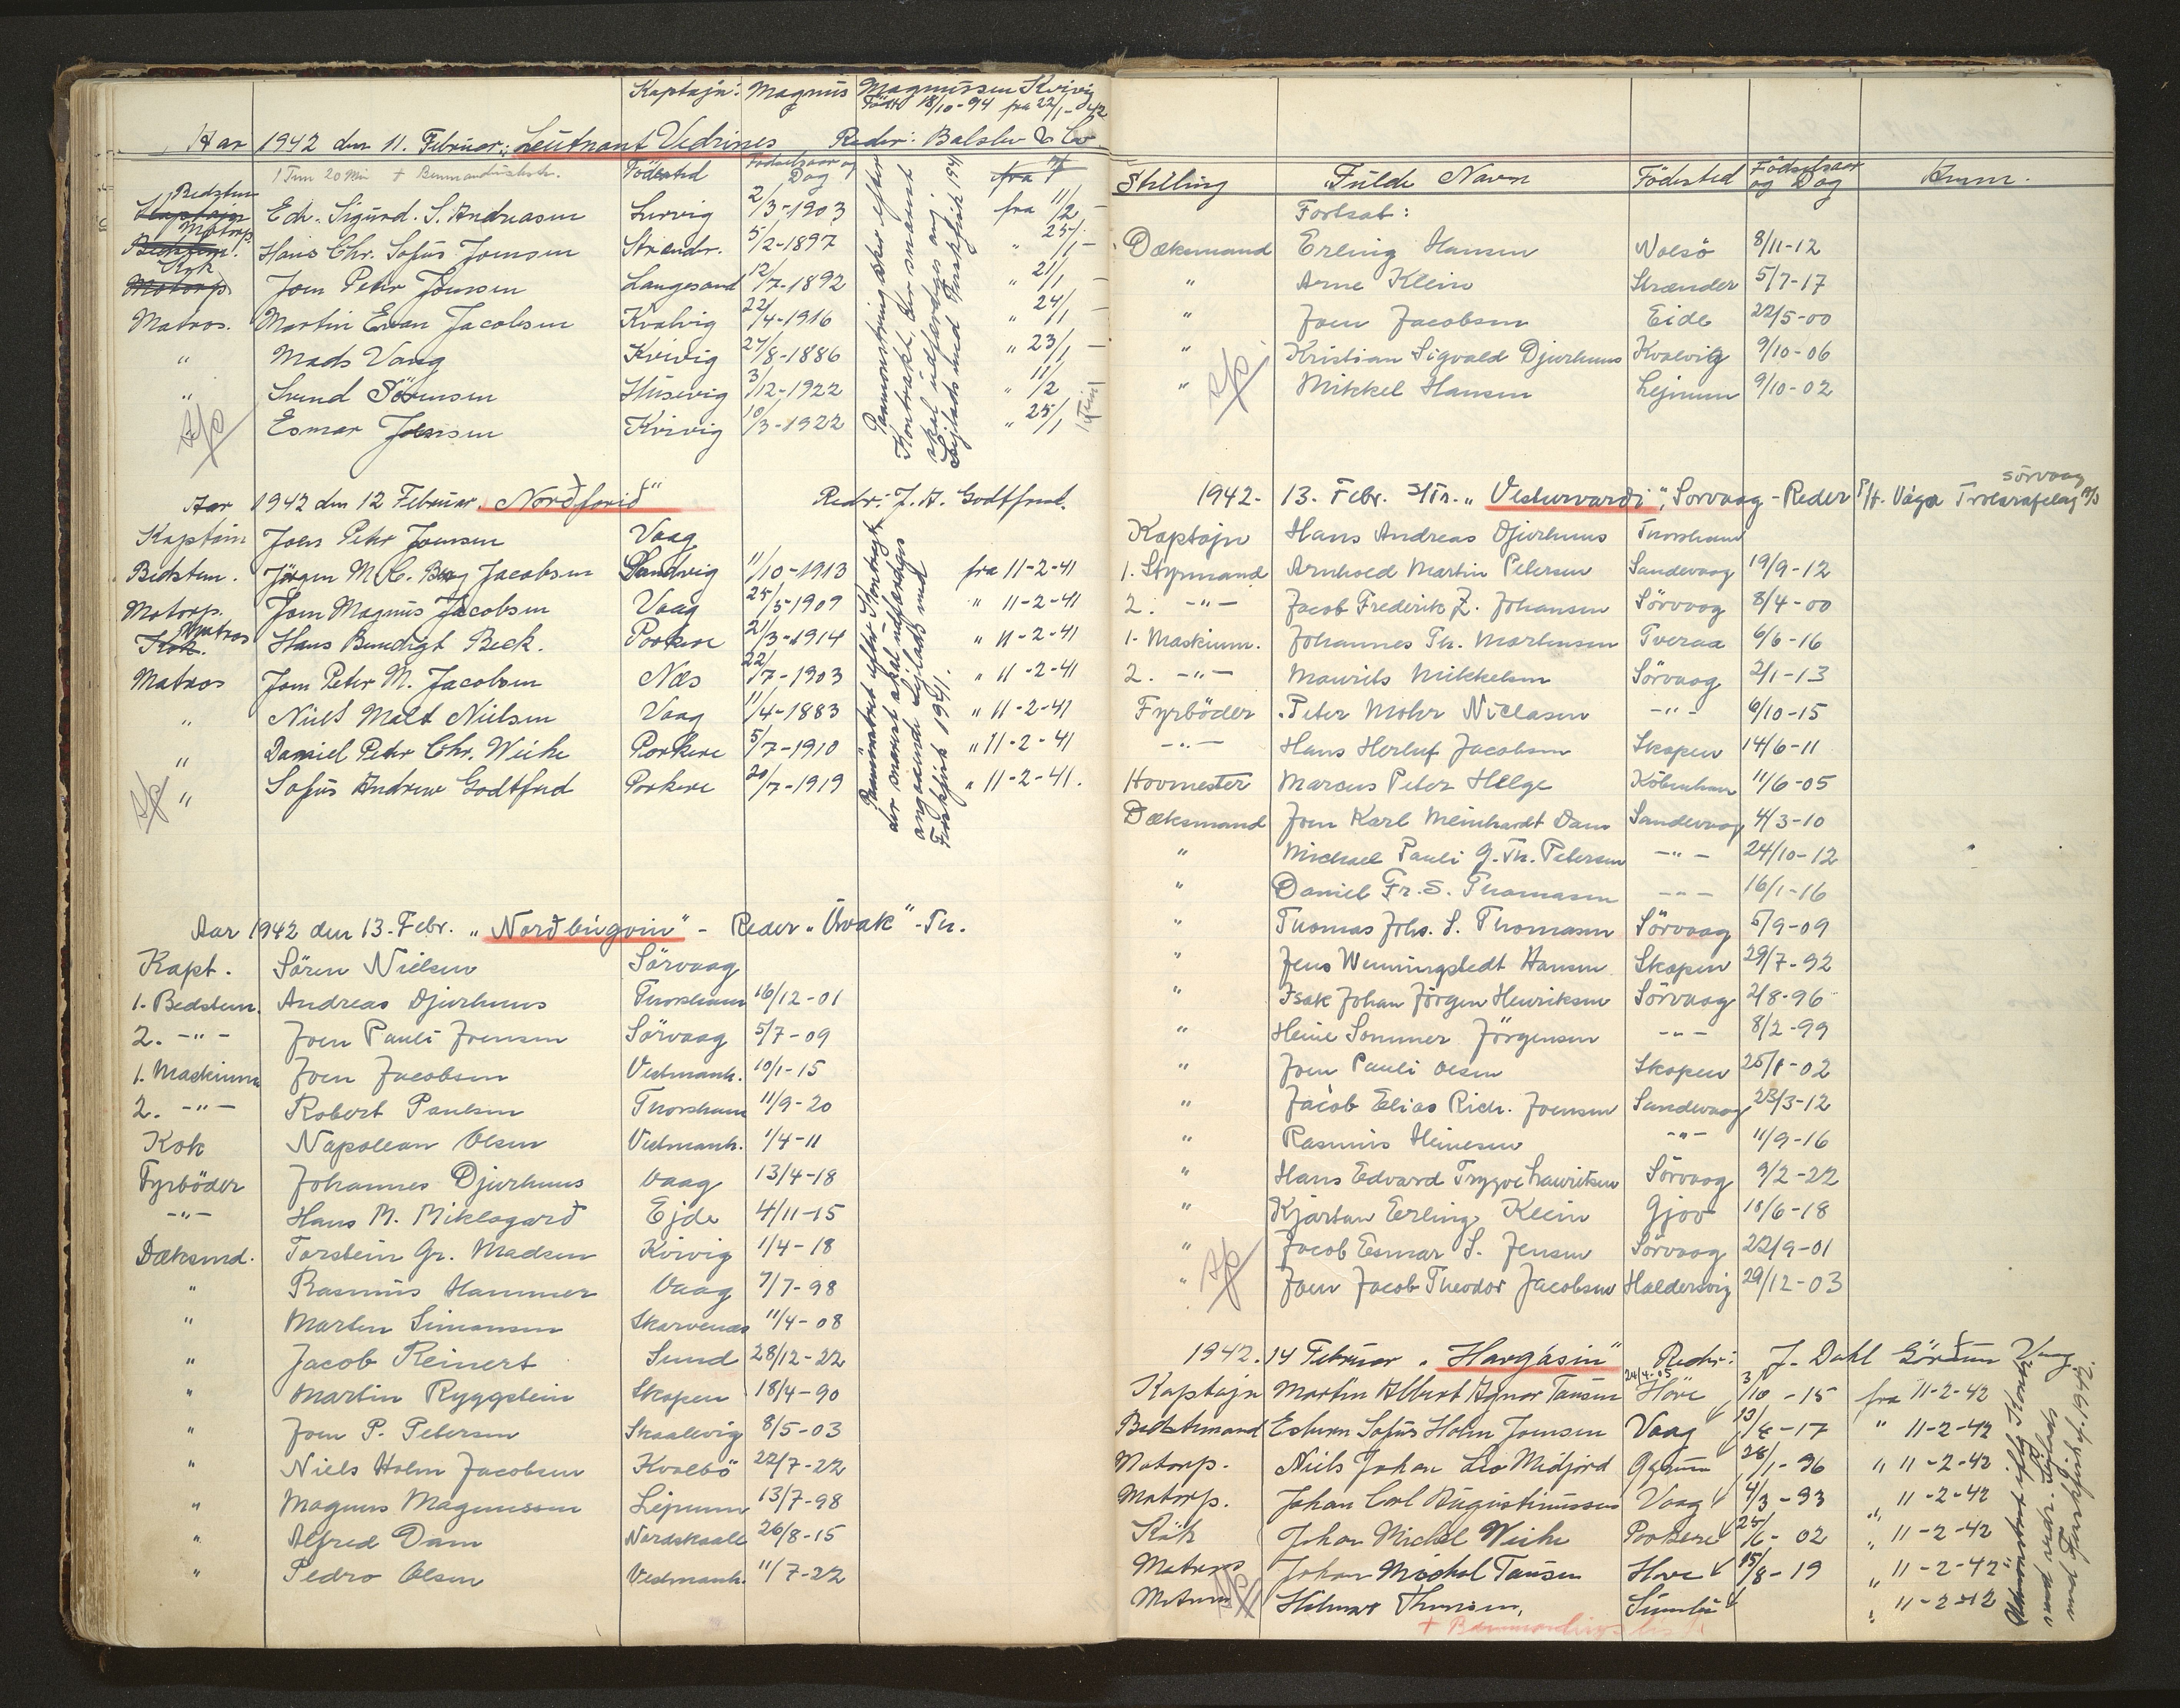 Kaptajn: Magnus Magnussen Kvivig
Født 18/10-94 fra 22/1-42
Aar 1942 den 11. Februar: Leutnant Vedrines Reder: Balslev & Co
1 Tim 20 Min + Bemandingsliste. Födested Fødselsaar og Dag
Kaptajn Bedstem Edv. Sigurd. S. Andreasen Lervig 2/3-1903 fra 11/2 -
Bedstem. Motorp. Hans Chr. Sofus Joensen Strændr. 5/2-1897 " 25/1 -
Motorp. Kok Joen Petur Joensen Langesand 12/7-1892 " 21/1 -
Matros. Martin Evan Jacobsen Kvalvig 22/4-1916 " 24/1 -
" Mads Vang Kvivig 27/8-1886 " 23/1 -
" Svend Sörensen Husevig 3/12-1922 " 11/2
" Esmar Joensen Kvivig 10/3-1922 " 25/1
Aar 1942 den 12 Februar. "Norðfarið" Redr: J. A. Godtfred.
Kaptain Joen Petur Joensen Vaag
Bedstem. Jörgen M. C. Berg Jacobsen Sandvig 11/10-1913 fra 11-2-41
Motorp. Joen Magnus Jacobsen Vaag 25/5-1909 " 11-2-41
Kok. Matros Hans Bendigt Beck. Porkere 21/3-1914 " 11-2-41
Matros Joen Petur M. Jacobsen Næs 22/7-1903 " 11-2-41
" Niels Malt Nielsen Vaag 11/4-1883 " 11-2-41
" Daniel Petur Chr. Weihe Porkere 5/7-1910 " 11-2-41
" Sofus Andrew Godtfred Porkere 20/7-1919 " 11-2-41.
Aar 1942 den 13. Febr. "Norðbúgvin" - Reder "Úvak" - Th.
Kapt. Sören Nielsen Sörvaag
1. Bedstem. Andreas Djurhuus Thorshavn 16/12-01
2. -"- Joen Pauli Joensen Sörvaag 5/7-09
1. Maskinm. Joen Jacobsen Vestmanh. 10/1-15
2. -"- Robert Paulsen Thorshavn 11/9-20
Kok Napolean Olsen Vestmanh. 1/4-11
Fyrböder Johannes Djurhuus Vaag 13/4-18
-"- Hans M. Miklagarð Ejde 4/11-15
Dæksmd. Torstein Gr. Madsen Kvivig 1/4-18
" Rasmus Hammer Vaag 7/7-98
" Morten Simonsen Skarvenæs 11/4-08
" Jacob Reinert Sund 28/12-22
" Martin Ryggstein Skopen 18/4-90
" Joen P. Petersen Skaalevig 8/5-03
" Niels Holm Jacobsen Kvalbö 22/7-22
" Magnus Magnussen Lejnum 13/7-98
" Alfred Dam Nordskaale 26/8-15
" Pedro Olsen Vestmanh. 11/7-22
Stilling Fulde Navn Födested Födselsaar og Dag Anm.
Fortsat:
Dæksmand Erling Hansen Nolsö 8/11-12
" Arne Klein Strænder 5/7-17
" Joen Jacobsen Eide 22/5-00
" Kristian Sigvald Djurhuus Kvalvig 9/10-06
" Mikkel Hansen Lejnum 9/10-02
1942. 13. Febr. S/Tr. "Vesturvarði", Sorvaag - Reder P/F. Vága Trolarafelag Sörvaag
Kaptajn Hans Andreas Djurhuus Thorshavn
1. Styrmand Arnhold Martin Petersen Sandevaag 19/9-12
2. -"- Jacob Frederik Z. Johansen Sörvaag 8/4-00
1. Maskinm. Johannes Th. Mortensen Tveraa 6/6-16
2. -"- Maurits Mikkelsen Sörvaag 2/1-13
Fyrböder Peter Mohr Niclasen -"- 6/10-15
-"- Hans Herluf Jacobsen Skopen 14/6-11
Hovmester Marcus Peter Helge Köbenhavn 11/6-05
Dæksmand Joen Karl Meinhardt Dam Sandevaag 4/3-10
" Michael Pauli G. Th. Petersen -"- 24/10-12
" Daniel Fr. S. Thomasen -"- 16/1-16
" Thomas Johs. S. Thomasen Sörvaag 5/9-09
" Jens Wenningstedt Hansen Skopen 29/7-92
" Isak Johan Jörgen Henriksen Sörvaag 2/8-96
" Heine Sommer Jörgensen -"- 8/2-99
" Joen Pauli Olsen Skopen 25/8-02
" Jacob Elias Rich. Joensen Sandevaag 23/3-12
" Rasmus Heinesen -"- 11/9-16
" Hans Edvard Trygve Lauritsen Sörvaag 9/2-22
" Kjartan Erling Klein Gjov 18/6-18
" Jacob Esmar S. Jensen Sörvaag 22/9-01
" Joen Jacob Theodor Jacobsen Haldersvig 29/12-03
1942. 14 Februar "Havgásin" Redr: J. Dahl Vaag
Kaptajn Martin Albert Agnar Tausen Höve 24/4-05 3/10-15 fra 11-2-42
Bedstemand Esbern Sofus Holm Joensen Vaag 13/8-17 " 11-2-42
Motorp. Niels Johan Leo Midjord 28/1-96 " 11-2-42
Motorp. Johan Carl Augustinussen Vaag 4/3-93 " 11-2-42
Kok Johan Michel Weihe Porkere 25/6-02 " 11-2-42
Matros Johan Michal Tausen Hove 15/8-19 " 11-2-42
Matros Hilmar Thomsen. Sumbö " 11-2-42
+ Bemandingsliste